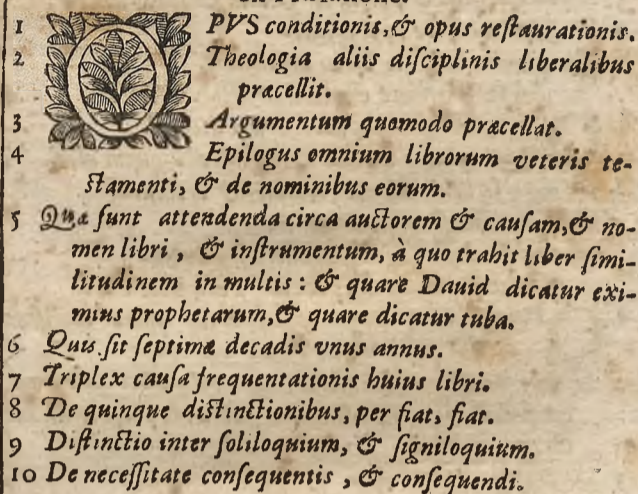 1 OPVS conditionis, & opus reſtaurationis.
2 Theologia aliis diſciplinis liberalibus
præcellit.
3 Argumentum quomodo præcellat.
4 Epilogus omnium librorum veteris te-
ſtamenti, & de nominibus eorum.
5 Quæ ſunt attendenda circa auctorem & cauſam, & no-
men libri, & inſtrumentum, à quo trahit liber ſimi-
litudinem in multis: & quare Dauid dicatur exi-
mius prophetarum, & quare dicatur tuba.
6 Quis ſit ſeptimæ decadis vnus annus.
7 Triplex cauſa frequentationis huius libri.
8 De quinque diſtinctionibus, per fiat, fiat.
9 Diſtinctio inter ſoliloquium, & ſigniloquium.
10 De neceſſitate conſequentis, & conſequendi.